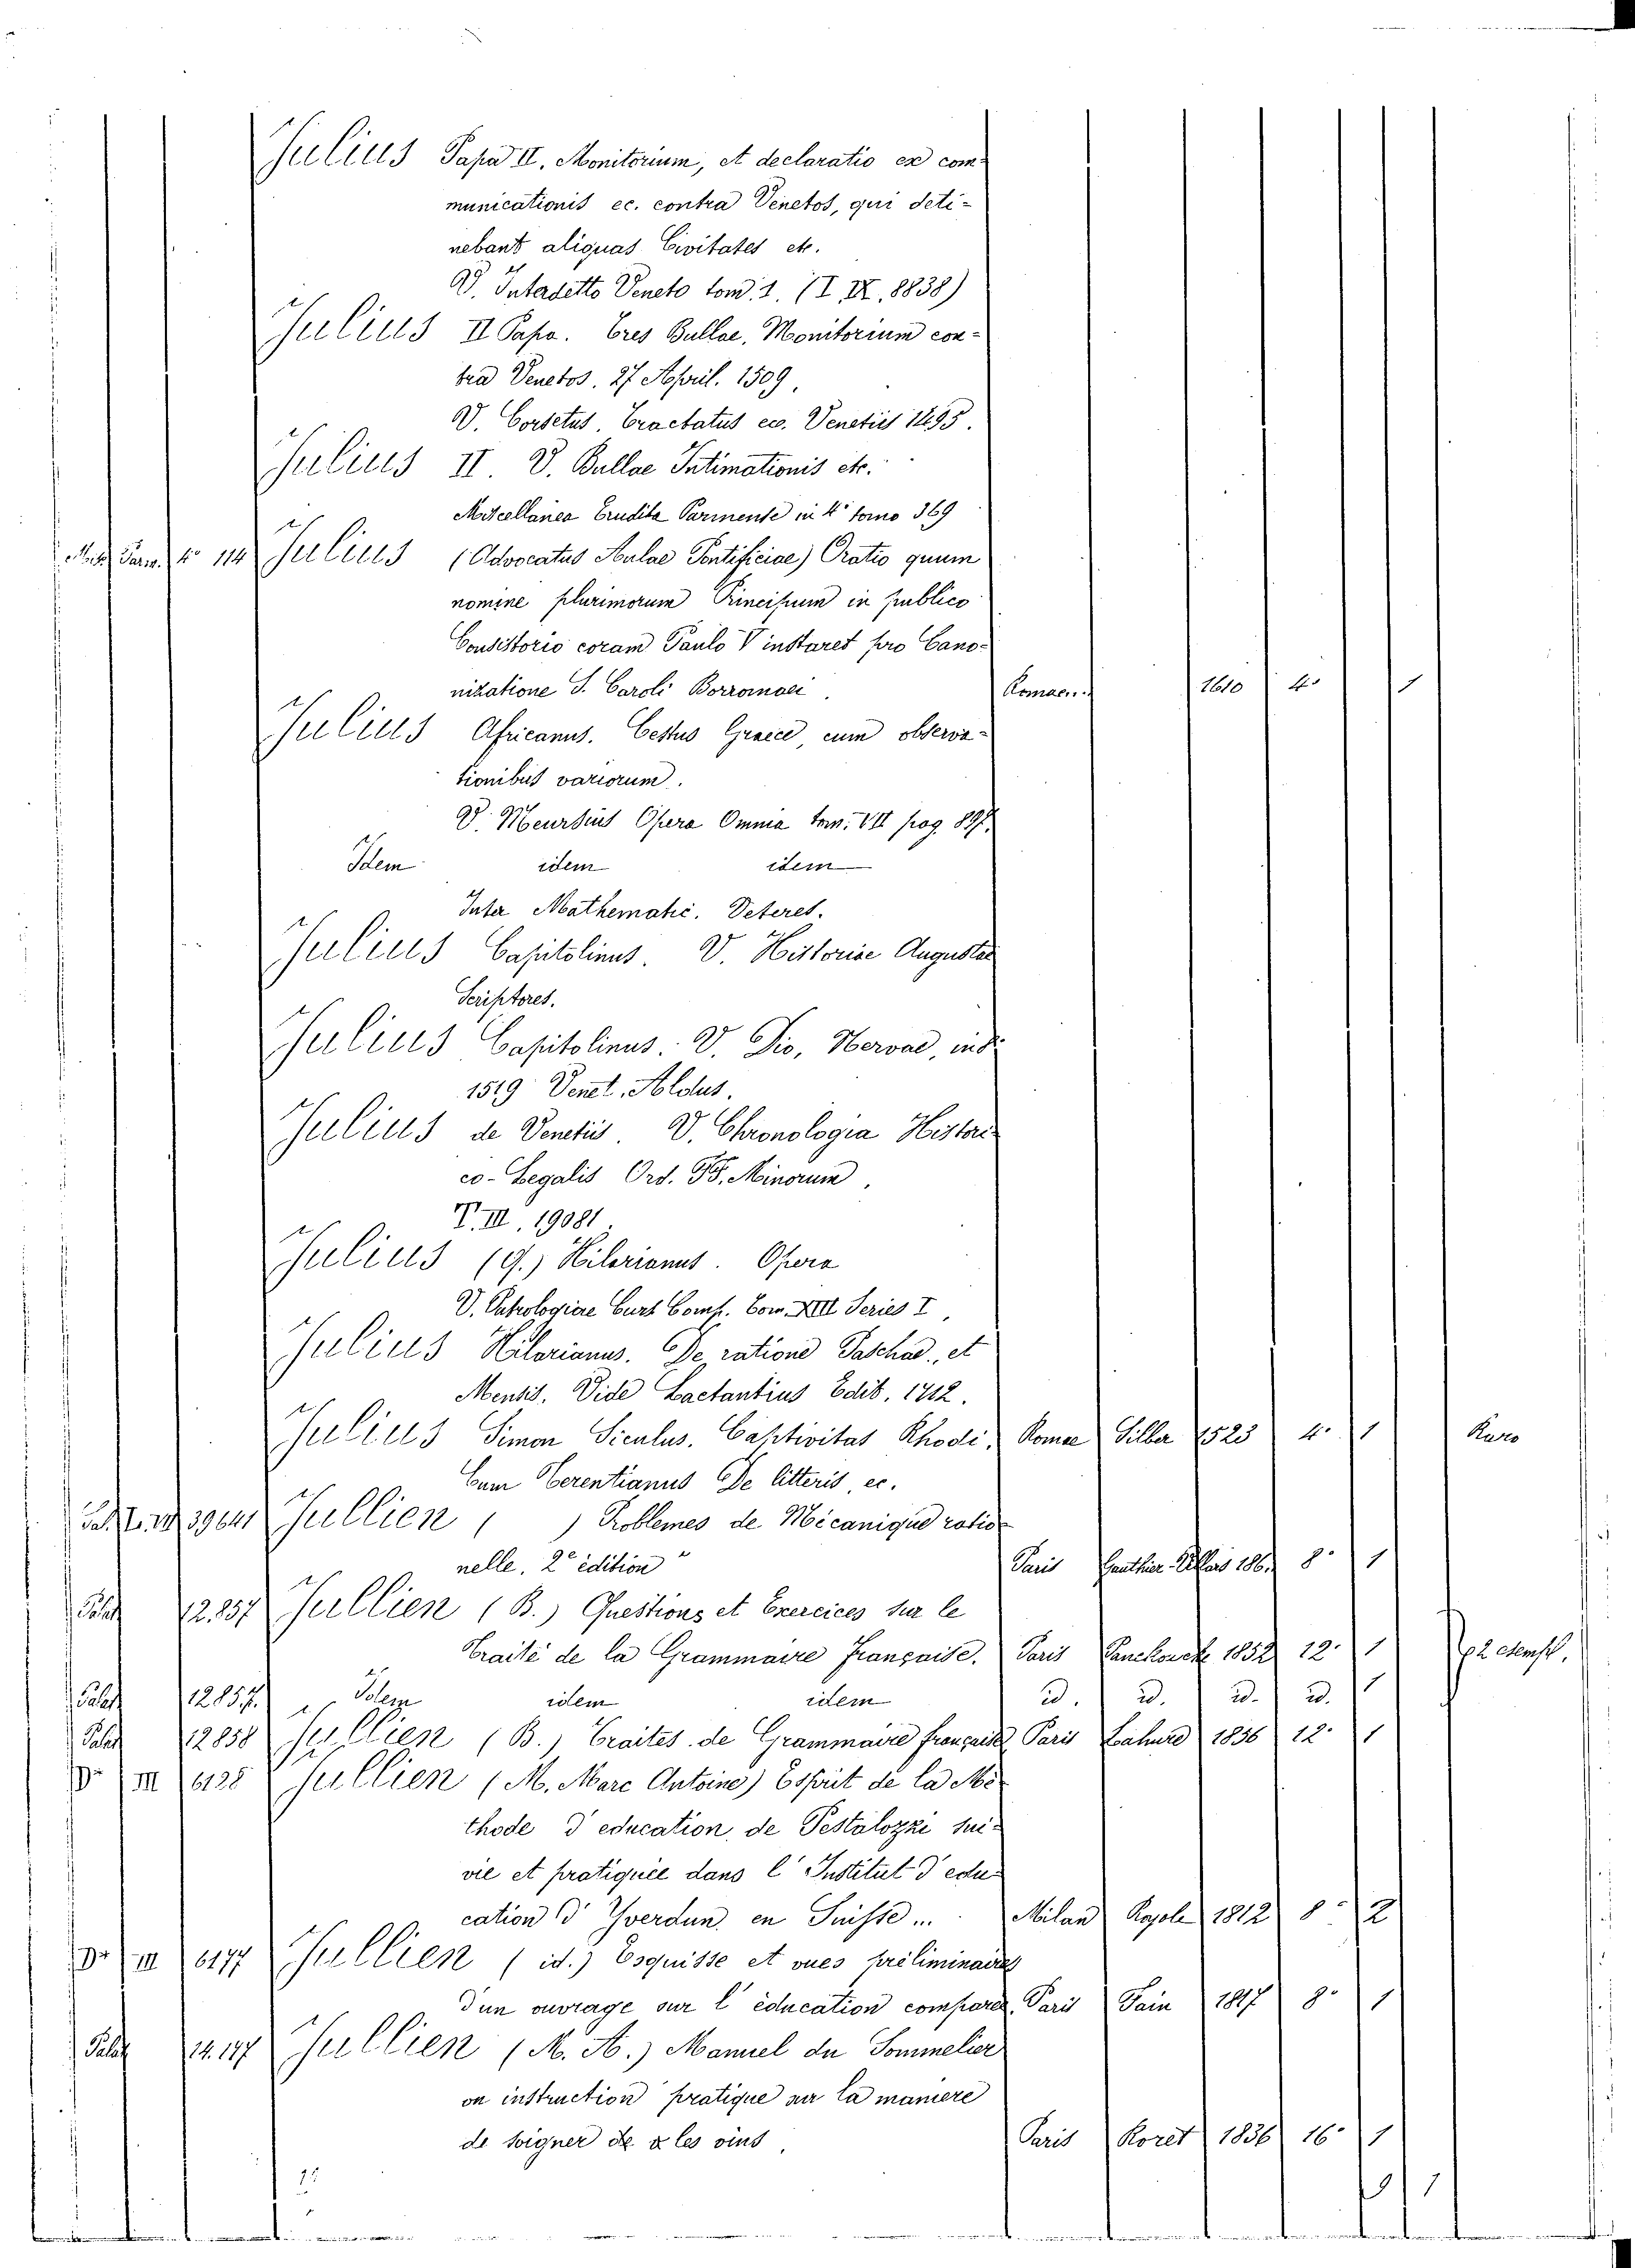 Julius Papa II. Monitorium, et declaratio ex com-
municationis ec. contra Venetos, qui deti-
nebant aliquas Civitates etc.
V. Interdetto Veneto tom. 1. (I. IX. 8838)
Julius II Papa. Tres Bullae, Monitorium con-
tra Venetos. 27 April. 1509.
V. Corsetus, Tractatus ecc. Venetiis 1495.
Julius II. V. Bullae Intimationis etc.
Miscellanea Erudita Parmense in 4º tomo 369
Misc. Parm. 4º 114 Julius (Advocatus Aulae Pontificiae) Oratio quum
nomine plurimorum Principum in publico
Consistorio coram Paulo V instaret pro Cano-
nizatione S. Caroli Borromaei. Romae... 1610 4º 1
Julius Africanus. Cestus Graece, cum observa-
tionibus variorum.
V. Meursius Opera Omnia tom. VII pag. 897.
Idem idem idem
Inter Mathematic. Veteres.
Julius Capitolinus. V. Historiae Augustae
Scriptores.
Julius Capitolinus. V. Dio, Nervae, ind
1519 Venet. Aldus.
Julius de Venetiis. V. Chronologia Histori-
co-Legalis Ord. FF. Minorum.
T. III. 19081.
Julius (Q.) Hilarianus. Opera
V. Patrologiae Curs Comp. Tom. XIII Series I.
Julius Hilarianus. De ratione Paschae, et
Mensis. Vide Lactantius Edit. 1712.
Julius Simon Siculus. Captivitas Rhodi. Romae Silber 1523 4º 1 Raro
Cum Terentianus De litteris, ec.
39641 Jullien ( ) Problemes de Mécanique ratio-
nelle. 2e édition Paris Gauthier-Villars 186. 8º 1
Palat 12.857 Jullien (B.) Questions et Exercices sur le
Traité de la Grammaire Française. Paris Panckoucke 1852 12º 1 2 esempl.
Palat 12857. Idem idem idem id. id. id. id. 1
Palat 12858 Jullien (B.) Traités de Grammaire française Paris Lahure 1836 12º 1
Dº III 6128 Jullien (M. Marc Antoine) Esprit de la Mé-
thode d'education, de Pestalozzi sui-
vie et pratiquée dans l'Institut d'edu-
cation d'Yverdun en Suisse... Milan Royole 1812 8º 2
Dº III 6177 Jullien (id.) Esquisse et vues préliminaires
d'un ouvrage sur l'éducation comparée. Paris Fain 1817 8º 1
Palat 14.147 Jullien (M. A.) Manuel du Sommelier
on instruction pratique sur la maniere
de soigner de les vins. Paris Roret 1836 16º 1